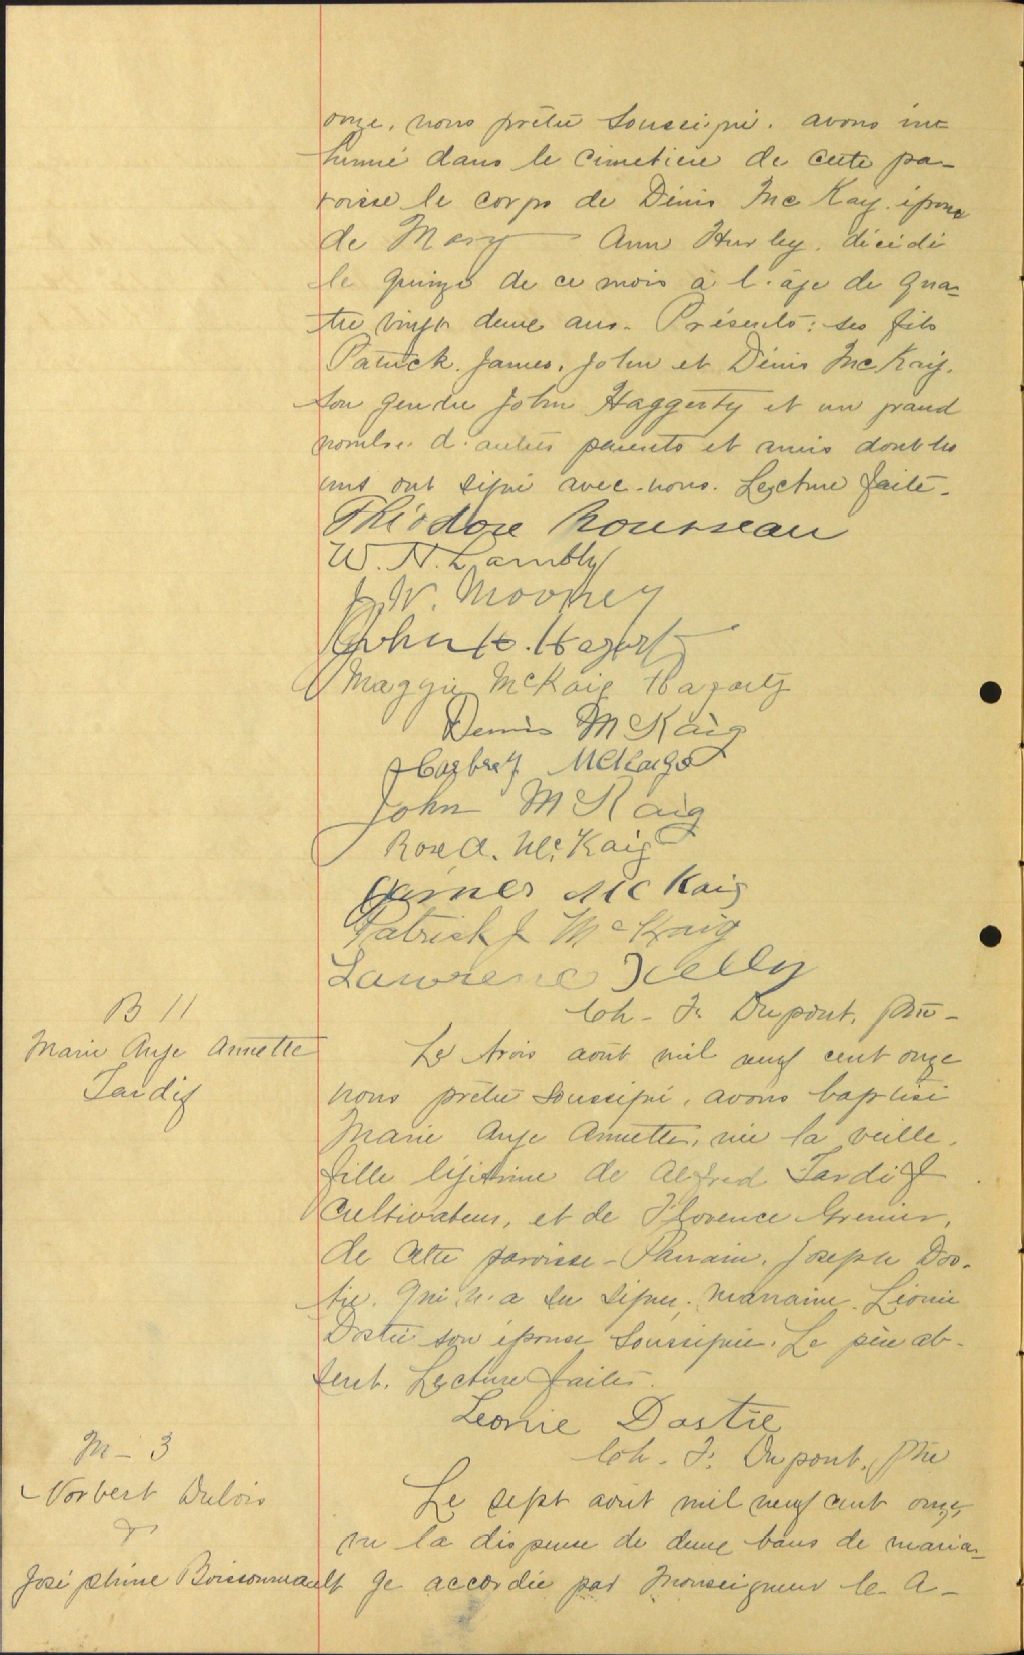 onze, nous prêtre soussigné. avons in=
humé dans le cimetière de cette pa-
roisse le corps de Dénis Mc Kay. époux
de Mary Ann Hurley. décédé
le quinze de ce mois à l'âge de qua-
tre vingt deux ans. Présents: ses fils
Patrick. James. John et Dénis Mc Kay.
son gendre John Haggerty et un grand
nombre d'autres parents et amis dont les
uns ont signé avec nous. Lecture faite.
Théodore Rousseau
W. N. Lambly
J. W. Mooney
John H. Hagerty
Maggie McKaig Hagarty
Dennis McKaig
McKaige
John McKaig
Rose A. McKaig
James McKaig
Patrick J McKaig
Lawrence Kelly
Ch. F. Dupont, Ptre
B 11
Marie Ange Annette
Tardif
Le trois août mil neuf cent onze
nous prêtre soussigné, avons baptisé
Marie Ange Annette, née la veille,
fille légitime de Alfred Tardif
cultivateur, et de Florence Grenier,
de cette paroisse - Parrain. Joseph Dos-
tie. qui n'a su signer. marraine. Léonie
Dostie son épouse soussignée. Le père ab-
sent. Lecture faite.
Leonie Dostie
Ch. F. Dupont. Ptre
M - 3
Norbert Dubois
&
Joséphine Boissonnault
Le sept août mil neuf cent onze,
vu la dispense de deux bans de maria-
ge accordée par Monseigneur le A-